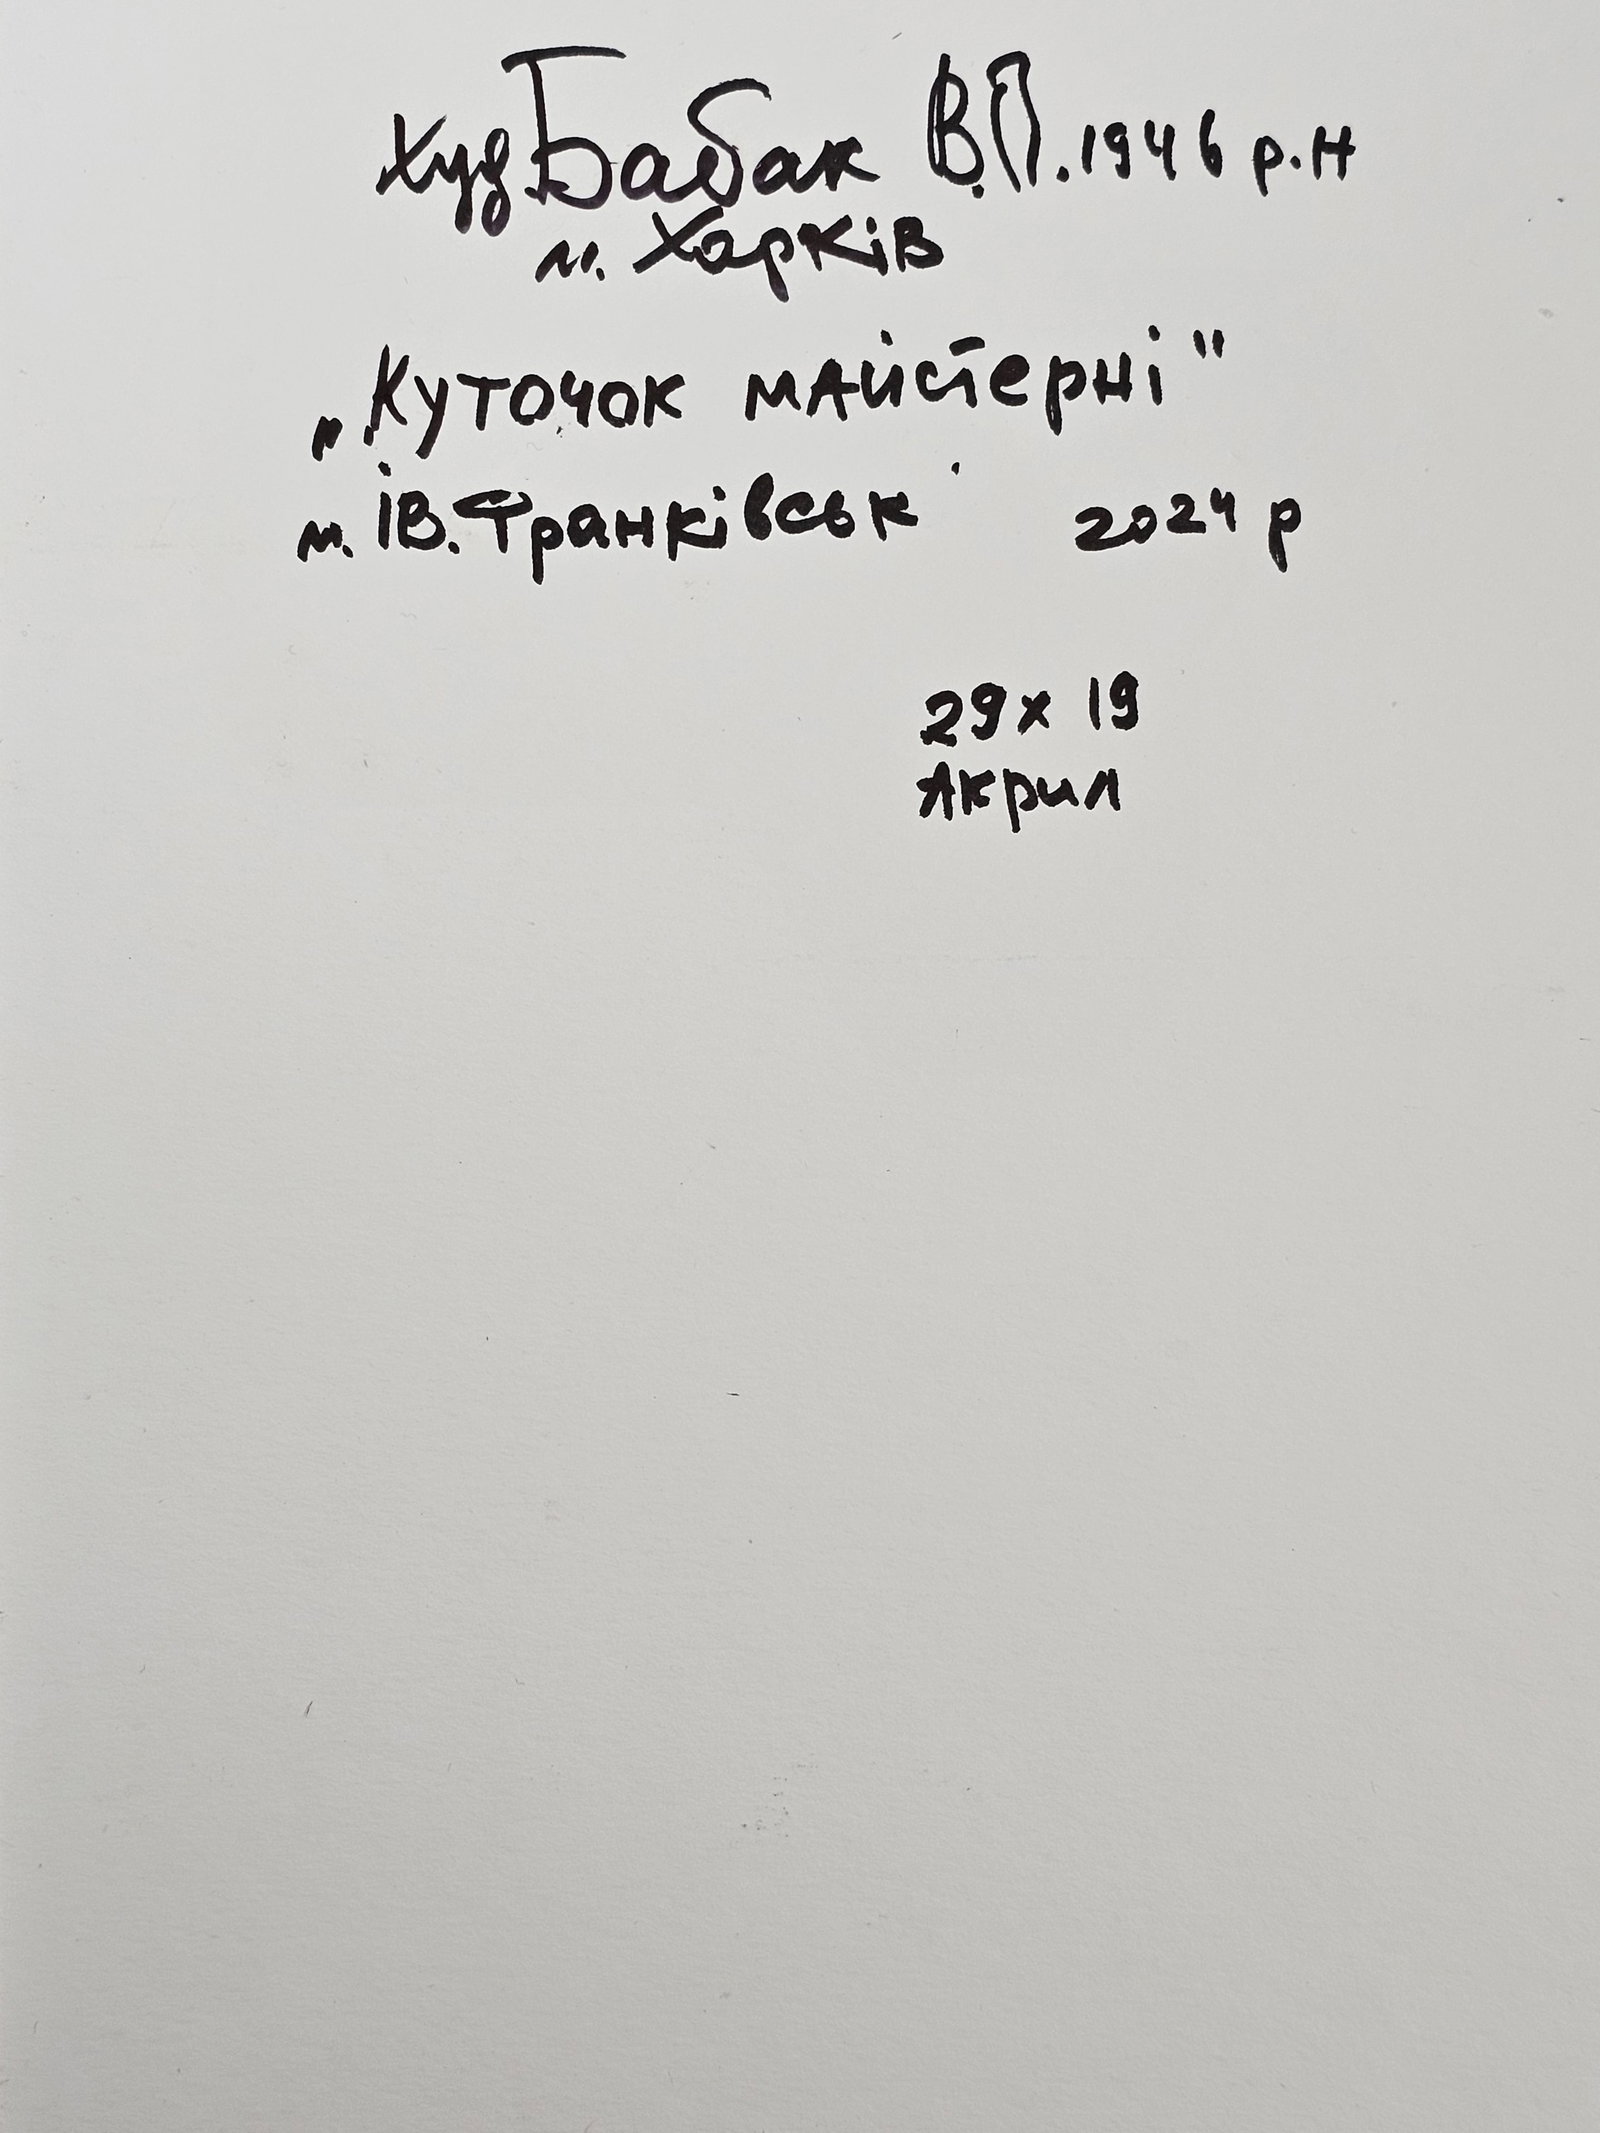 Худ Бабак В.П. 1946 р.н
м. Харків
„Куточок майстерні"
м. Ів. Франківськ 2024 р
29 х 19
Акрил